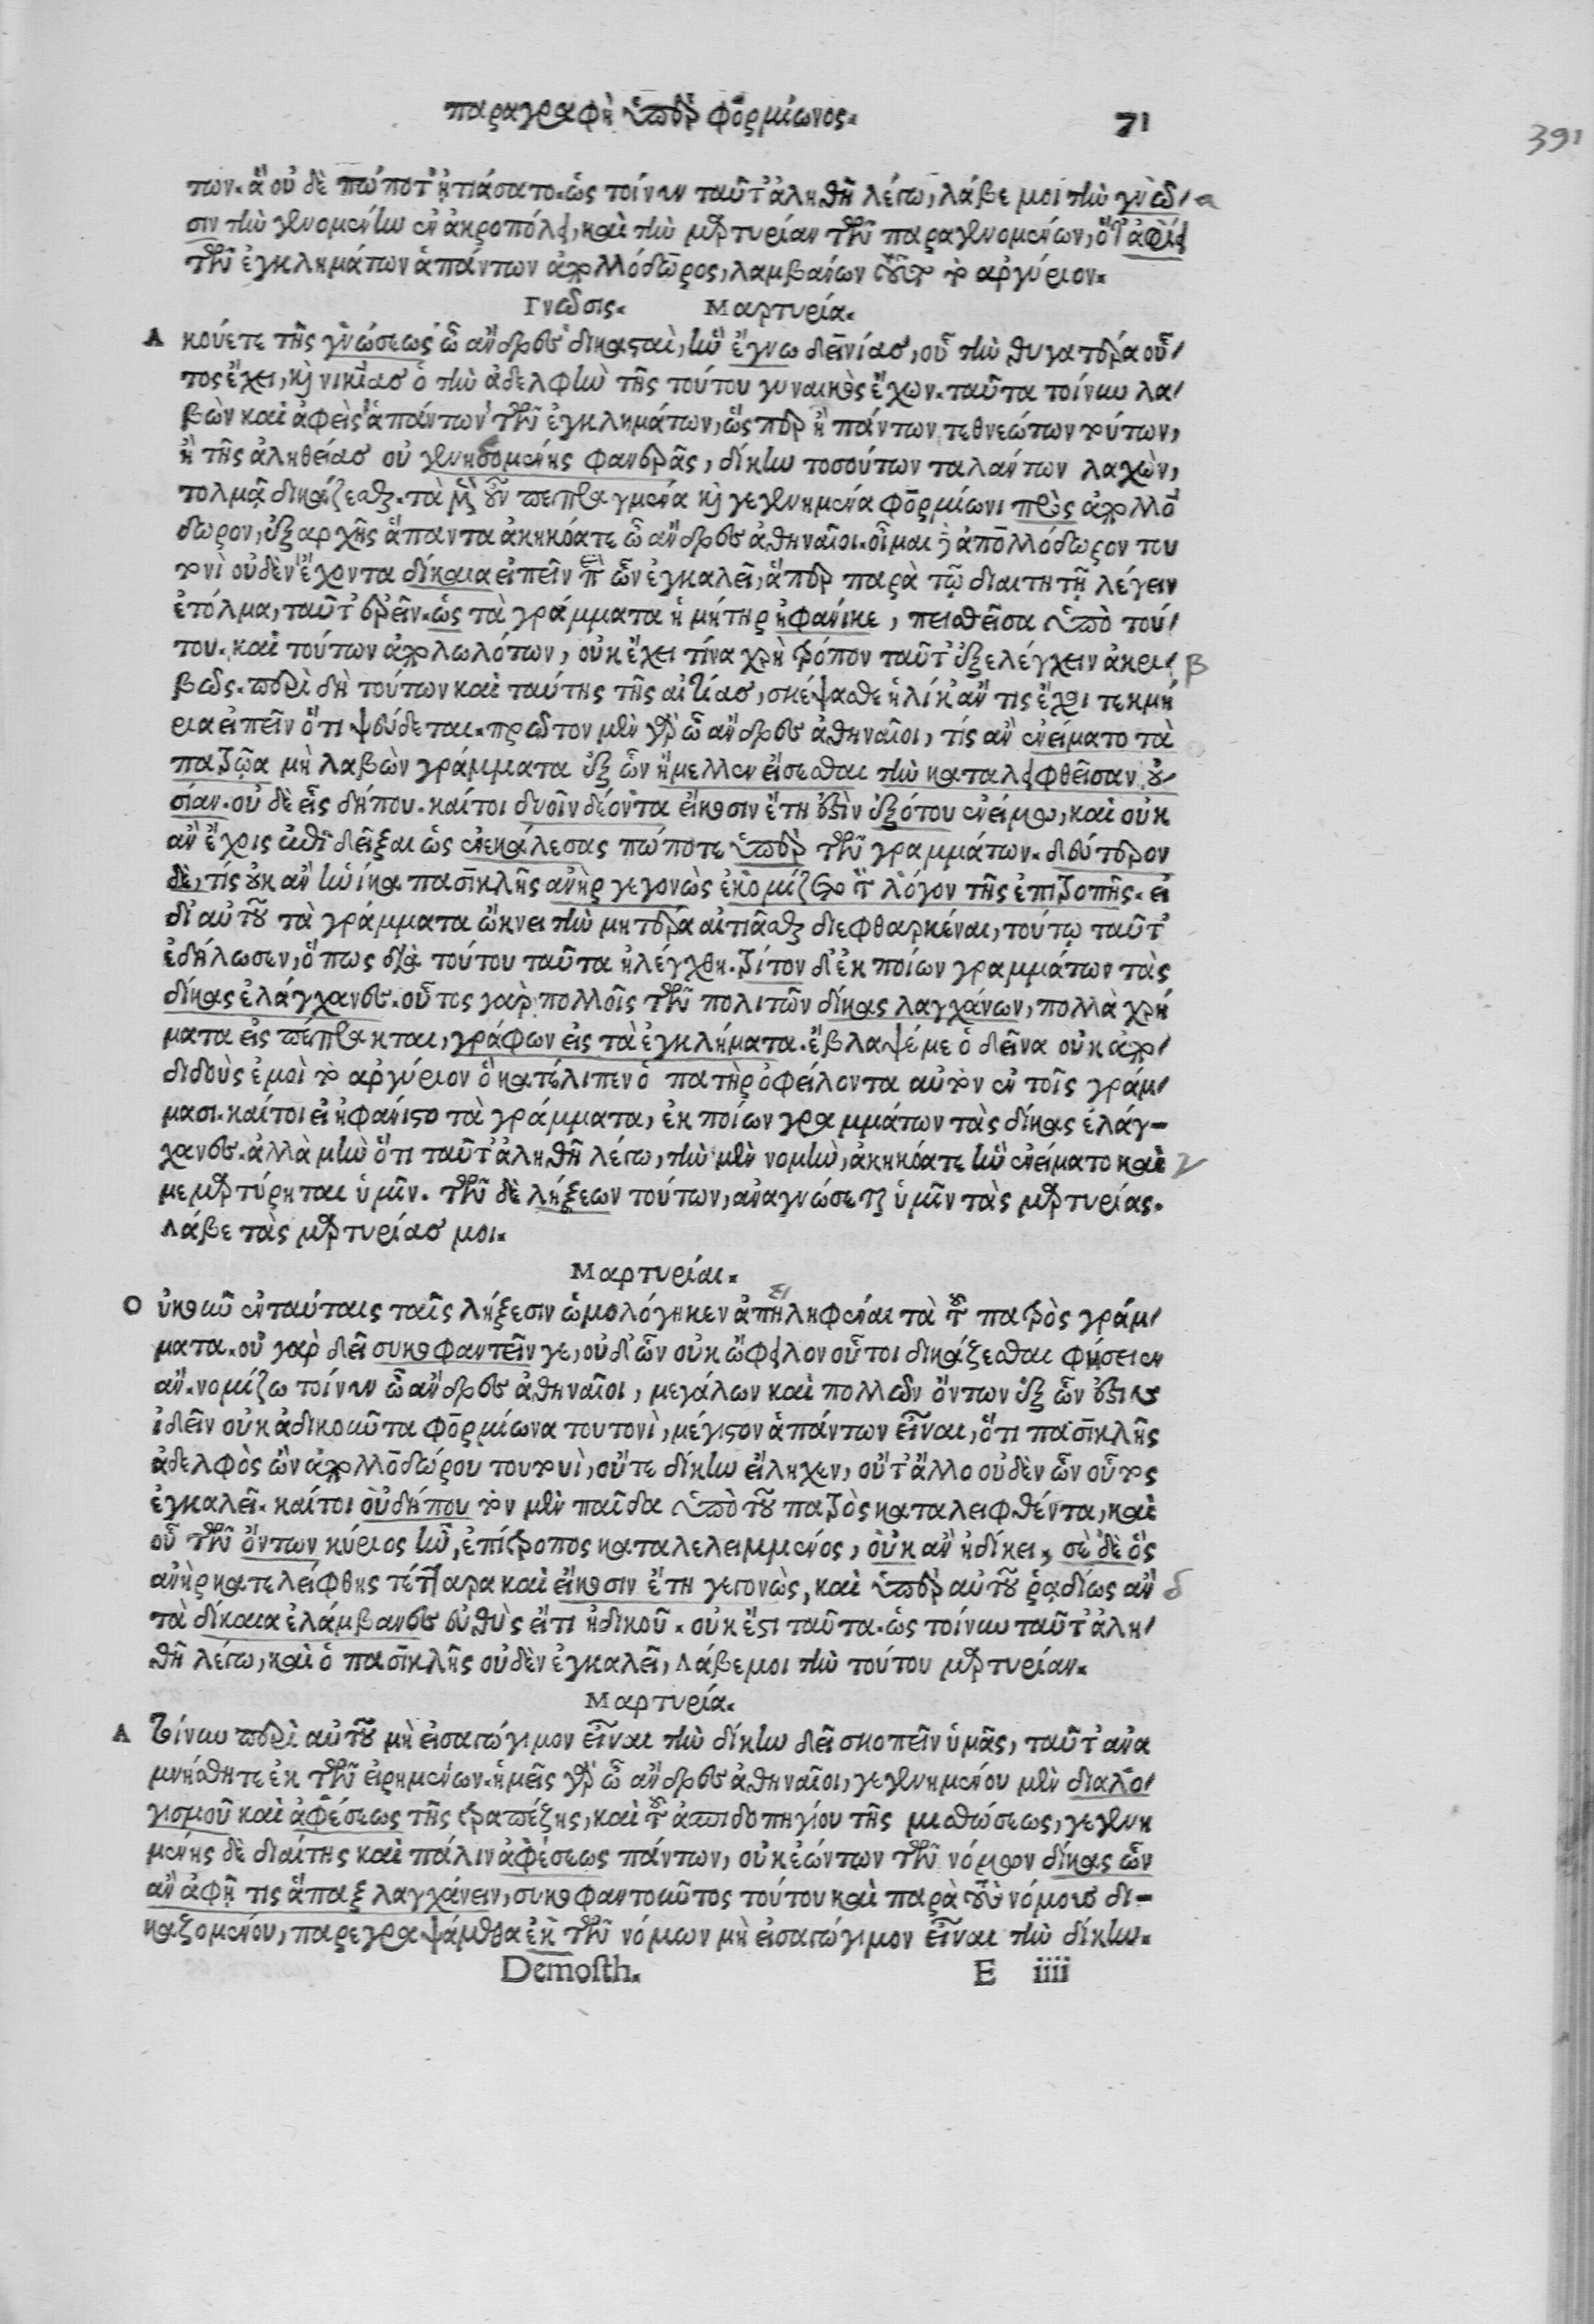 παραγραφὴ ὑπὲρ φορμίωνος. 71
391
των. ἃ οὐ δὲ πώποτ' ᾐτιάσατο. ὡς τοίνυν ταῦτ' ἀληθῆ λέγω, λάβε μοι τὴν γνῶ/ α
σιν τὴν γενομένην ἐν ἀκροπόλει, καὶ τὴν μαρτυρίαν τῶν παραγενομένων, ὅτ' ἀφίει
τῶν ἐγκλημάτων ἁπάντων ἀπολλόδωρος, λαμβάνων τοῦτο τὸ ἀργύριον.
Γνῶσις. Μαρτυρία.
Α κούετε τῆς γνώσεως ὦ ἄνδρες δικασταὶ, ἣν ἔγνω δεινίας, οὗ τὴν θυγατέρα οὗ/
τος ἔχει, καὶ νικίας ὁ τὴν ἀδελφὴν τῆς τούτου γυναικὸς ἔχων. ταῦτα τοίνυν λα/
βὼν καὶ ἀφεὶς ἁπάντων τῶν ἐγκλημάτων, ὥσπερ ἢ πάντων τεθνεώτων τούτων,
ἢ τῆς ἀληθείας οὐ γενησομένης φανερᾶς, δίκην τοσούτων ταλάντων λαχὼν,
τολμᾷ δικάζεσθαι. τὰ μὲν οὖν πεπραγμένα καὶ γεγενημένα φορμίωνι πρὸς ἀπολλό
δωρον, ἐξαρχῆς ἅπαντα ἀκηκόατε ὦ ἄνδρες ἀθηναῖοι. οἶμαι δ' ἀπολλόδωρον του
τονὶ οὐδὲν ἔχοντα δίκαια εἰπεῖν περὶ ὧν ἐγκαλεῖ, ἅπερ παρὰ τῷ διαιτητῇ λέγειν
ἐτόλμα, ταῦτ' ἐρεῖν. ὡς τὰ γράμματα ἡ μήτηρ ἠφάνικε, πεισθεῖσα ὑπὸ τού/
του. καὶ τούτων ἀπολωλότων, οὐκ ἔχει τίνα χρὴ τρόπον ταῦτ' ἐξελέγχειν ἀκρι/ β
βῶς. περὶ δὴ τούτων καὶ ταύτης τῆς αἰτίας, σκέψασθε ἡλίκ' ἄν τις ἔχοι τεκμή
ρια εἰπεῖν ὅτι ψεύδεται. πρῶτον μὲν γὰρ ὦ ἄνδρες ἀθηναῖοι, τίς ἂν ἐνείματο τὰ
πατρῷα μὴ λαβὼν γράμματα ἐξ ὧν ἤμελλεν εἴσεσθαι τὴν καταλειφθεῖσαν οὐ/
σίαν. οὐ δὲ εἷς δήπου. καίτοι δυοῖν δέοντα εἴκοσιν ἔτη ἐστὶν ἐξότου ἐνείμω, καὶ οὐκ
ἂν ἔχοις ἐπιδεῖξαι ὡς ἐνεκάλεσας πώποτε ὑπὲρ τῶν γραμμάτων. δεύτερον
δὲ, τίς οὐκ ἂν ἡνίκα πασικλῆς ἀνὴρ γεγονὼς ἐκομίζετο τὸν λόγον τῆς ἐπιτροπῆς. εἰ
δι' αὑτοῦ τὰ γράμματα ὤκνει τὴν μητέρα αἰτιᾶσθαι διεφθαρκέναι, τούτῳ ταῦτ'
ἐδήλωσεν, ὅπως διὰ τούτου ταῦτα ἠλέγχθη. τρίτον δ' ἐκ ποίων γραμμάτων τὰς
δίκας ἐλάγχανες. οὗτος γὰρ πολλοῖς τῶν πολιτῶν δίκας λαγχάνων, πολλὰ χρή
ματα εἰσπέπρακται, γράφων εἰς τὰ ἐγκλήματα. ἔβλαψέ με ὁ δεῖνα οὐκ ἀπο/
διδοὺς ἐμοὶ τὸ ἀργύριον ὃ κατέλιπεν ὁ πατὴρ ὀφείλοντα αὐτὸν ἐν τοῖς γράμ/
μασι. καίτοι εἰ ἠφάνιστο τὰ γράμματα, ἐκ ποίων γραμμάτων τὰς δίκας ἐλάγ-
χανες. ἀλλὰ μὴν ὅτι ταῦτ' ἀληθῆ λέγω, τὴν μὲν νομὴν, ἀκηκόατε ἣν ἐνείματο καὶ γ
μεμαρτύρηται ὑμῖν. τῶν δὲ λήξεων τούτων, ἀναγνώσεται ὑμῖν τὰς μαρτυρίας.
λάβε τὰς μαρτυρίας μοι.
Μαρτυρίαι.
Ο ὐκοῦν ἐν ταύταις ταῖς λήξεσιν ὡμολόγηκεν ἀπηληφέναι τὰ τοῦ πατρὸς γράμ/
ματα. οὐ γὰρ δεῖ συκοφαντεῖν γε, οὐδ' ὧν οὐκ ὤφειλον οὗτοι δικάζεσθαι φήσειεν
ἄν. νομίζω τοίνυν ὦ ἄνδρες ἀθηναῖοι, μεγάλων καὶ πολλῶν ὄντων ἐξ ὧν ἔστιν
ἰδεῖν οὐκ ἀδικοῦντα φορμίωνα τουτονὶ, μέγιστον ἁπάντων εἶναι, ὅτι πασικλῆς
ἀδελφὸς ὢν ἀπολλοδώρου τουτουὶ, οὔτε δίκην εἴληχεν, οὔτ' ἄλλο οὐδὲν ὧν οὗτος
ἐγκαλεῖ. καίτοι οὐδήπου τὸν μὲν παῖδα ὑπὸ τοῦ πατρὸς καταλειφθέντα, καὶ
οὗ τῶν ὄντων κύριος ἦν, ἐπίτροπος καταλελειμμένος, οὐκ ἂν ἠδίκει, σὲ δὲ ὃς
ἀνὴρ κατελείφθης τέτταρα καὶ εἴκοσιν ἔτη γεγονὼς, καὶ ὑπὲρ αὑτοῦ ῥᾳδίως ἂν δ
τὰ δίκαια ἐλάμβανες εὐθὺς εἴτι ἠδικοῦ. οὐκ ἔστι ταῦτα. ὡς τοίνυν ταῦτ' ἀλη/
θῆ λέγω, καὶ ὁ πασικλῆς οὐδὲν ἐγκαλεῖ, λάβε μοι τὴν τούτου μαρτυρίαν.
Μαρτυρία.
Α τοίνυν περὶ αὐτοῦ μὴ εἰσαγώγιμον εἶναι τὴν δίκην δεῖ σκοπεῖν ὑμᾶς, ταῦτ' ἀνα
μνήσθητε ἐκ τῶν εἰρημένων. ἡμεῖς γὰρ ὦ ἄνδρες ἀθηναῖοι, γεγενημένου μὲν διαλο/
γισμοῦ καὶ ἀφέσεως τῆς τραπέζης, καὶ τοῦ ἀσπιδοπηγίου τῆς μισθώσεως, γεγενη
μένης δὲ διαίτης καὶ πάλιν ἀφέσεως πάντων, οὐκ ἐώντων τῶν νόμων δίκας ὧν
ἂν ἀφῇ τις ἅπαξ λαγχάνειν, συκοφαντοῦντος τούτου καὶ παρὰ τοὺς νόμους δι-
καζομένου, παρεγραψάμεθα ἐκ τῶν νόμων μὴ εἰσαγώγιμον εἶναι τὴν δίκην.
Demosth. E iiii